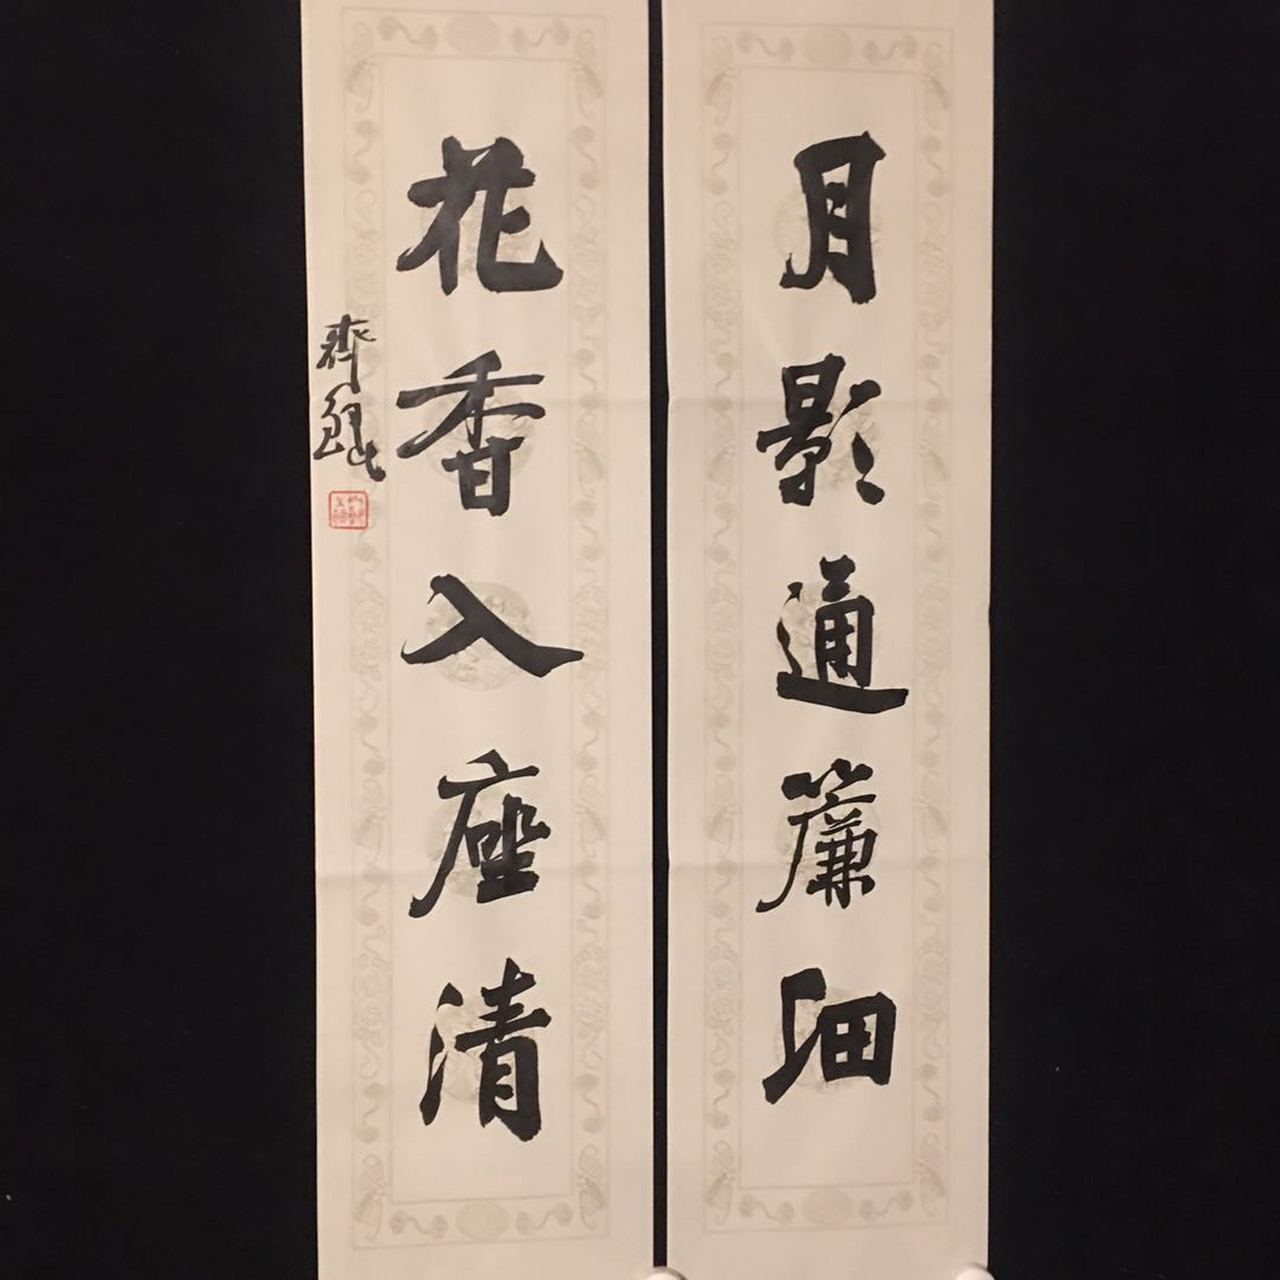 月影通簾細
花香入座清